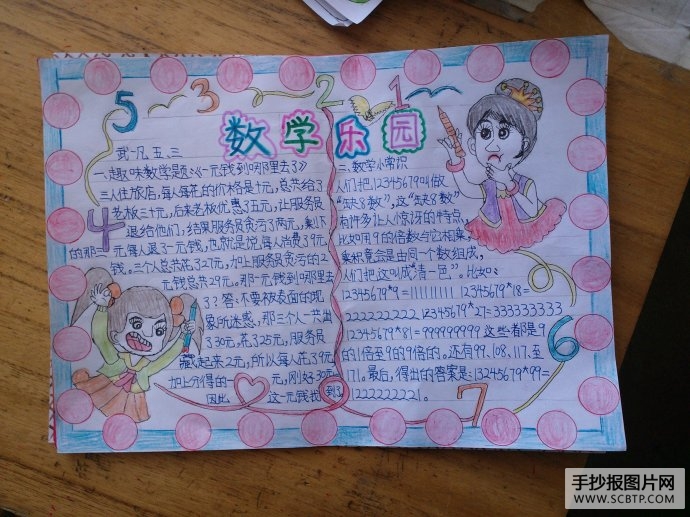 5 3 2 1
数学乐园
武凡 五.三
一、趣味数学题:《一元钱到哪里去了》
三人住旅店,每人每花的价格是十元,总共给了
老板三十元,后来老板优惠了五元,让服务员
退给他们,结果服务员贪污了两元,剩下
的那三元每人退了一元钱,也就是说,每人消费了9元
钱。三个人总共花了27元,加上服务员贪污的2
元钱总共29元。那一元钱到哪里去
了?答:不要被表面的现
象所迷惑,那三个人一共出
了30元,花了25元,服务员
藏起来2元,所以每人花了9元,
加上分得的一元,刚好30元。
因此这一元钱找到了。
4
二、数学小常识
人们把12345679叫做
“缺8数”,这“缺8数”
有许多让人惊讶的特点,
比如用9的倍数与它相乘,
乘积竟会是由同一个数组成,
人们把这叫做“清一色”。比如:
12345679*9=111111111 12345679*18=
222222222 12345679*27=333333333
12345679*81=999999999 这些都是9
的1倍至9的9倍的。还有99、108、117、至
171。最后,得出的答案是:12345679*99=
1222222221。
6
7
手抄报图片网
WWW.SCBTP.COM